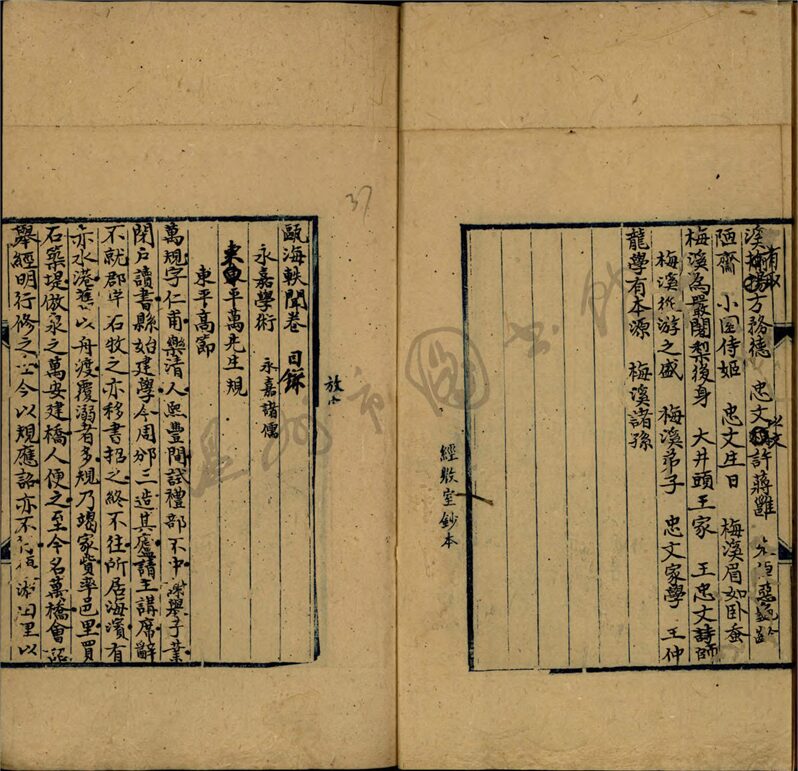 方務德　忠文　許蔣
陋齋　小園侍姬　忠文庄日　梅溪眉如臥蚕
梅溪為嚴闍梨後身　大井頭王家　王忠文詩師
梅溪從游之盛　梅溪弟子　忠文家學　王仲
龍學有本源　梅溪諸孫
經敄室鈔本
37
甌海軼聞卷　目錄
永嘉學術　永嘉諸儒
東平萬先生規
東平高節
萬規字仁甫樂清人熙豐間試禮部不中　舉子業
閉戶讀書縣始建學令周邠三造其廬請主講席辭
不就郡守石牧之亦移書招之終不往所居海濱有
赤水港舊以舟渡覆溺者多規乃竭家貲率邑里買
石築堤倣泉之萬安建橋人便之至今名萬橋會
舉經明行修之士令以規應詔亦不　里以